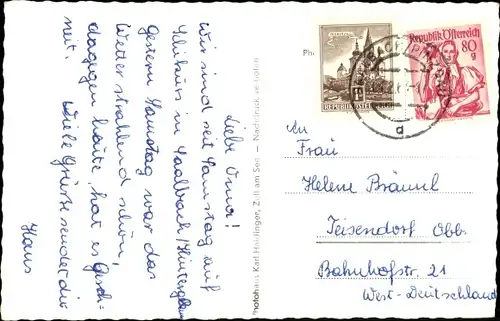 Liebe Oma!
Wir sind seit Samstag auf
Skikurs in Saalbach/Hinterglemm
Gestern Samstag war das
Wetter strahlend schön,
dagegen heute hat es Gesch-
neit. Viele Grüße sendet dir
Hans
Photohaus Karl Haidinger, Zell am See – Nachdruck verboten
REPUBLIK ÖSTERREICH
Republik Österreich
80
g
An
Frau
Helene Bräunl
Teisendorf Obb.
Bahnhofstr. 21
West-Deutschland